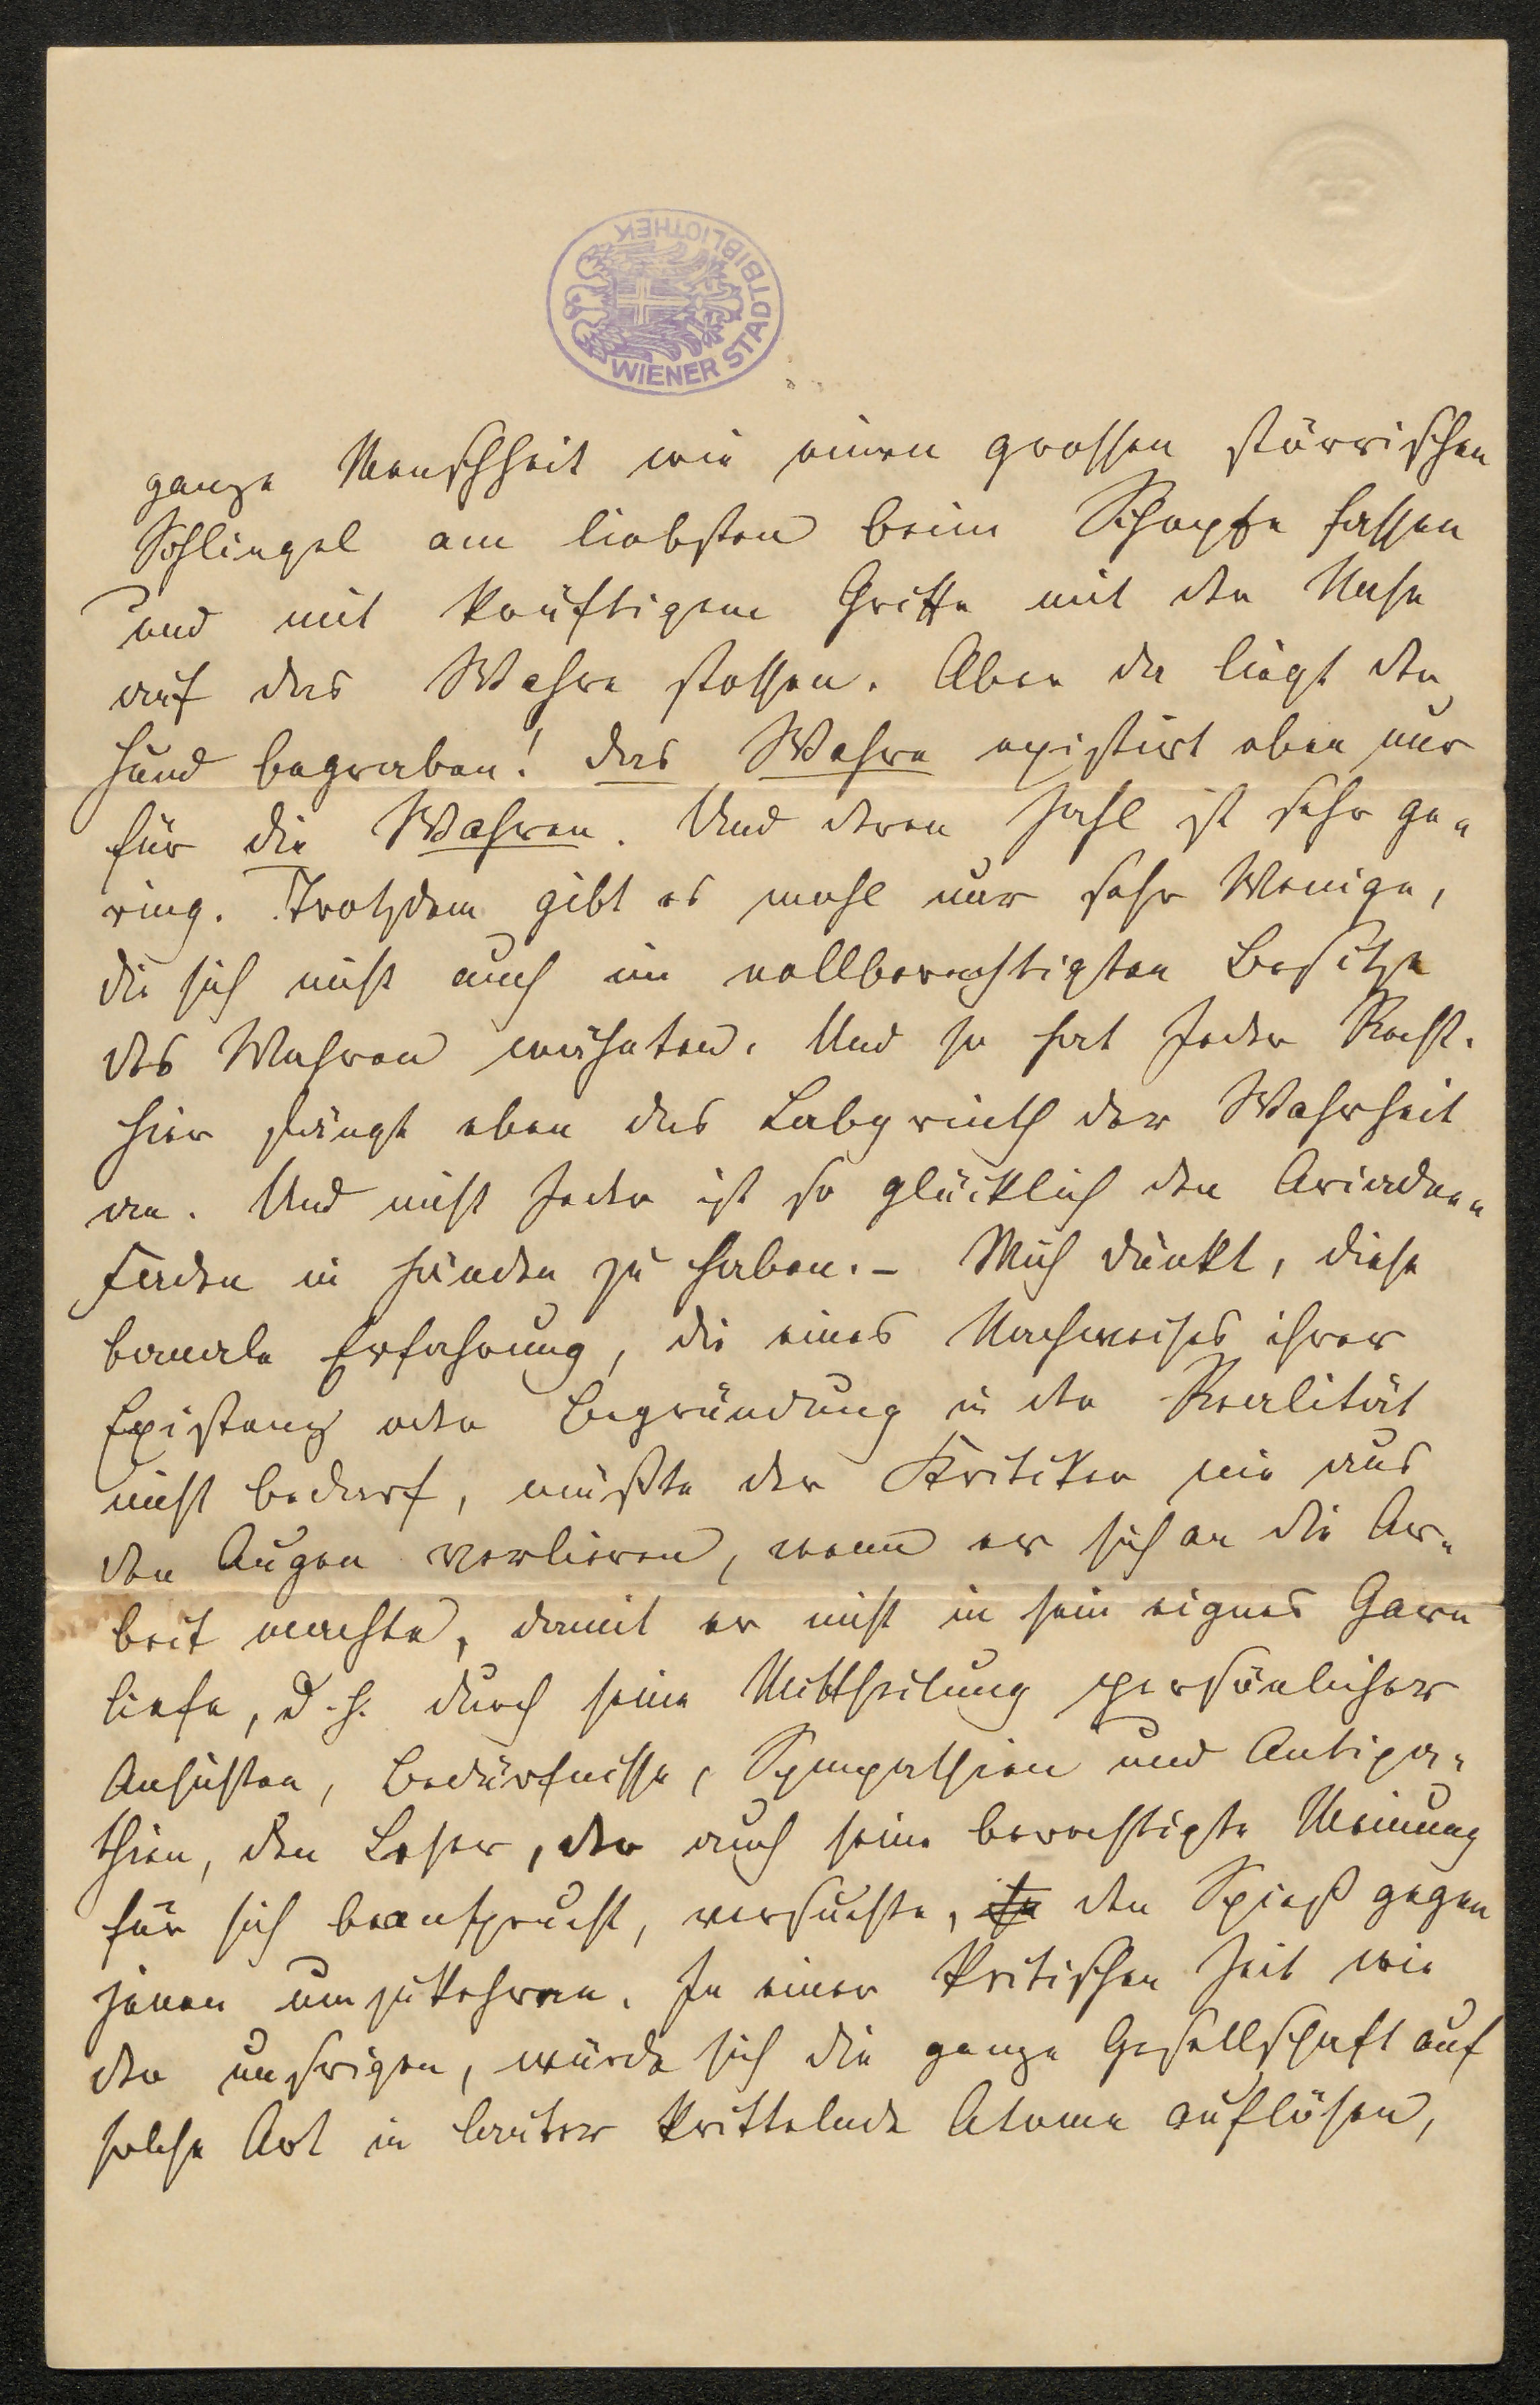 WIENER STADTBIBLIOTHEK
ganze Menschheit wie einen grossen störrischen
Schlingel am liebsten beim Schopfe fassen
und mit kräftigem Griffe mit der Nase
auf das Wahre stossen. Aber da liegt der
Hund begraben! das Wahre existirt eben nur
für die Wahren. Und deren Zahl ist sehr ge-
ring. Trotzdem gibt es wohl nur sehr Wenige,
die sich nicht auch im vollberechtigten Besitze
des Wahren wähnten. Und so hat Jeder Recht.
Hier fängt eben das Labyrinth der Wahrheit
an. Und nicht Jeder ist so glücklich den Ariadne-
faden in Händen zu haben. – Mich dünkt, diese
banale Erfahrung, die eines Nachweises ihrer
Existenz oder Begründung in der Realität
nicht bedarf, müßte der Kritiker nie aus
den Augen verlieren, wenn er sich an die Ar-
beit machte, damit er nicht in sein eignes Garn
liefe, d. h. durch seine Mittheilung persönlicher
Ansichten, Bedürfnisse, Sympathien und Antipa-
thien, den Leser, der auch seine berechtigte Meinung
für sich beansprucht, versuchte, den Spieß gegen
jenen umzukehren. In einer kritischen Zeit wie
der unsrigen, würde sich die ganze Gesellschaft auf
solche Art in lauter krittelnde Atome auflösen,